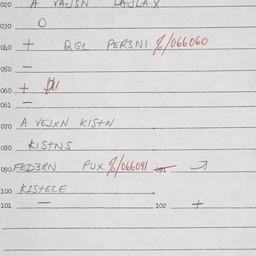 020 A VAJSN LAJLAX
030 O
040 + QGL PER3NI %/066060
050 —
060 +
061 —
070 A VEJXN KISTN
080 KISTNS
090 FED3RN PUX %/066091 091
100 KISTELE
101 — 102 +